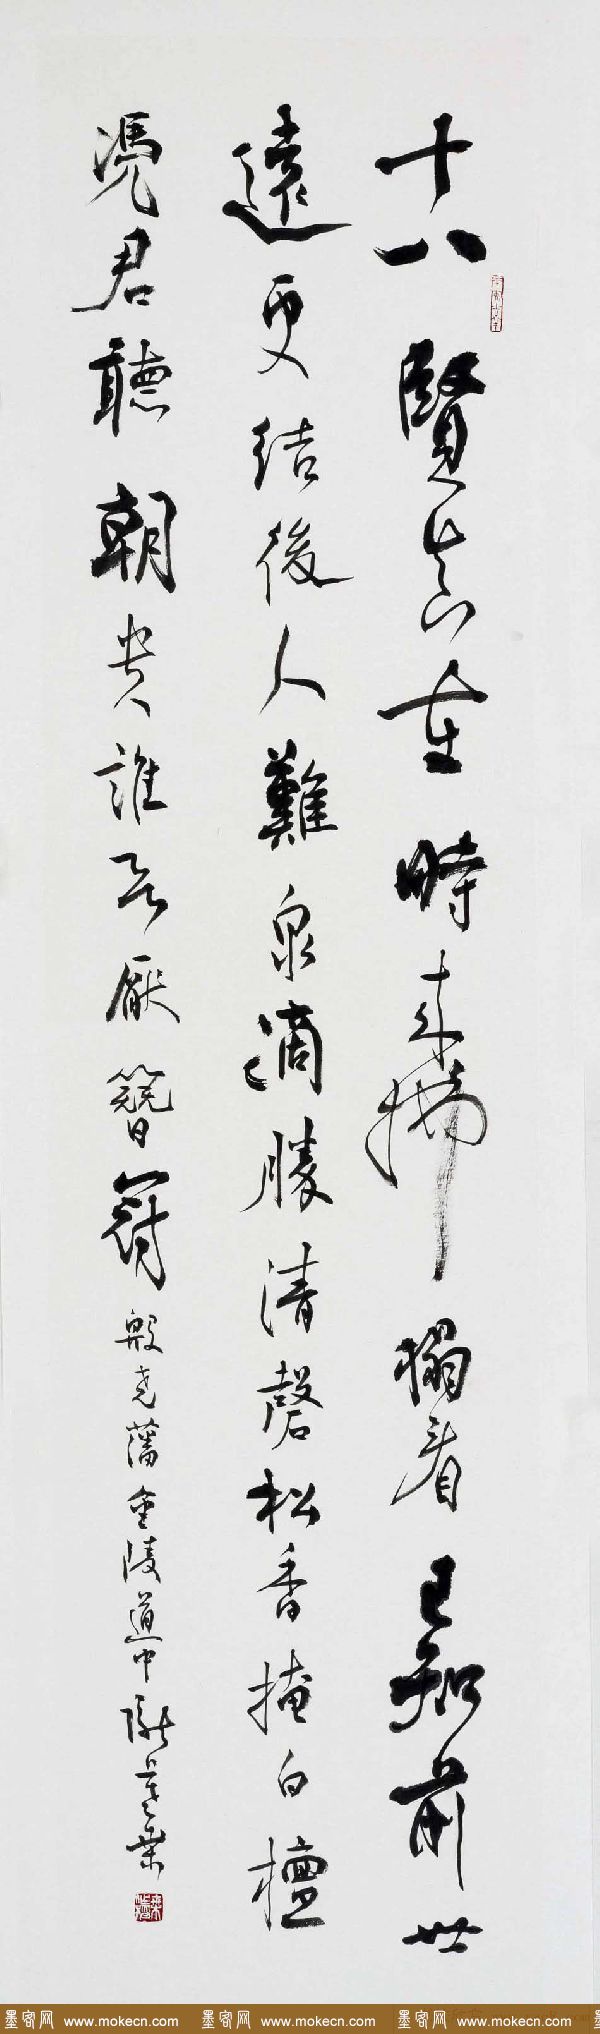 十八賢真在時來拂榻看已知前世
遠更結後人難泉滴勝清磬松香掩白檀
憑君聽朝貴誰不厭簪冠
殷尧藩金陵道中
墨客网 www.mokecn.com 墨客网 www.mokecn.com 墨客网 www.mokecn.com